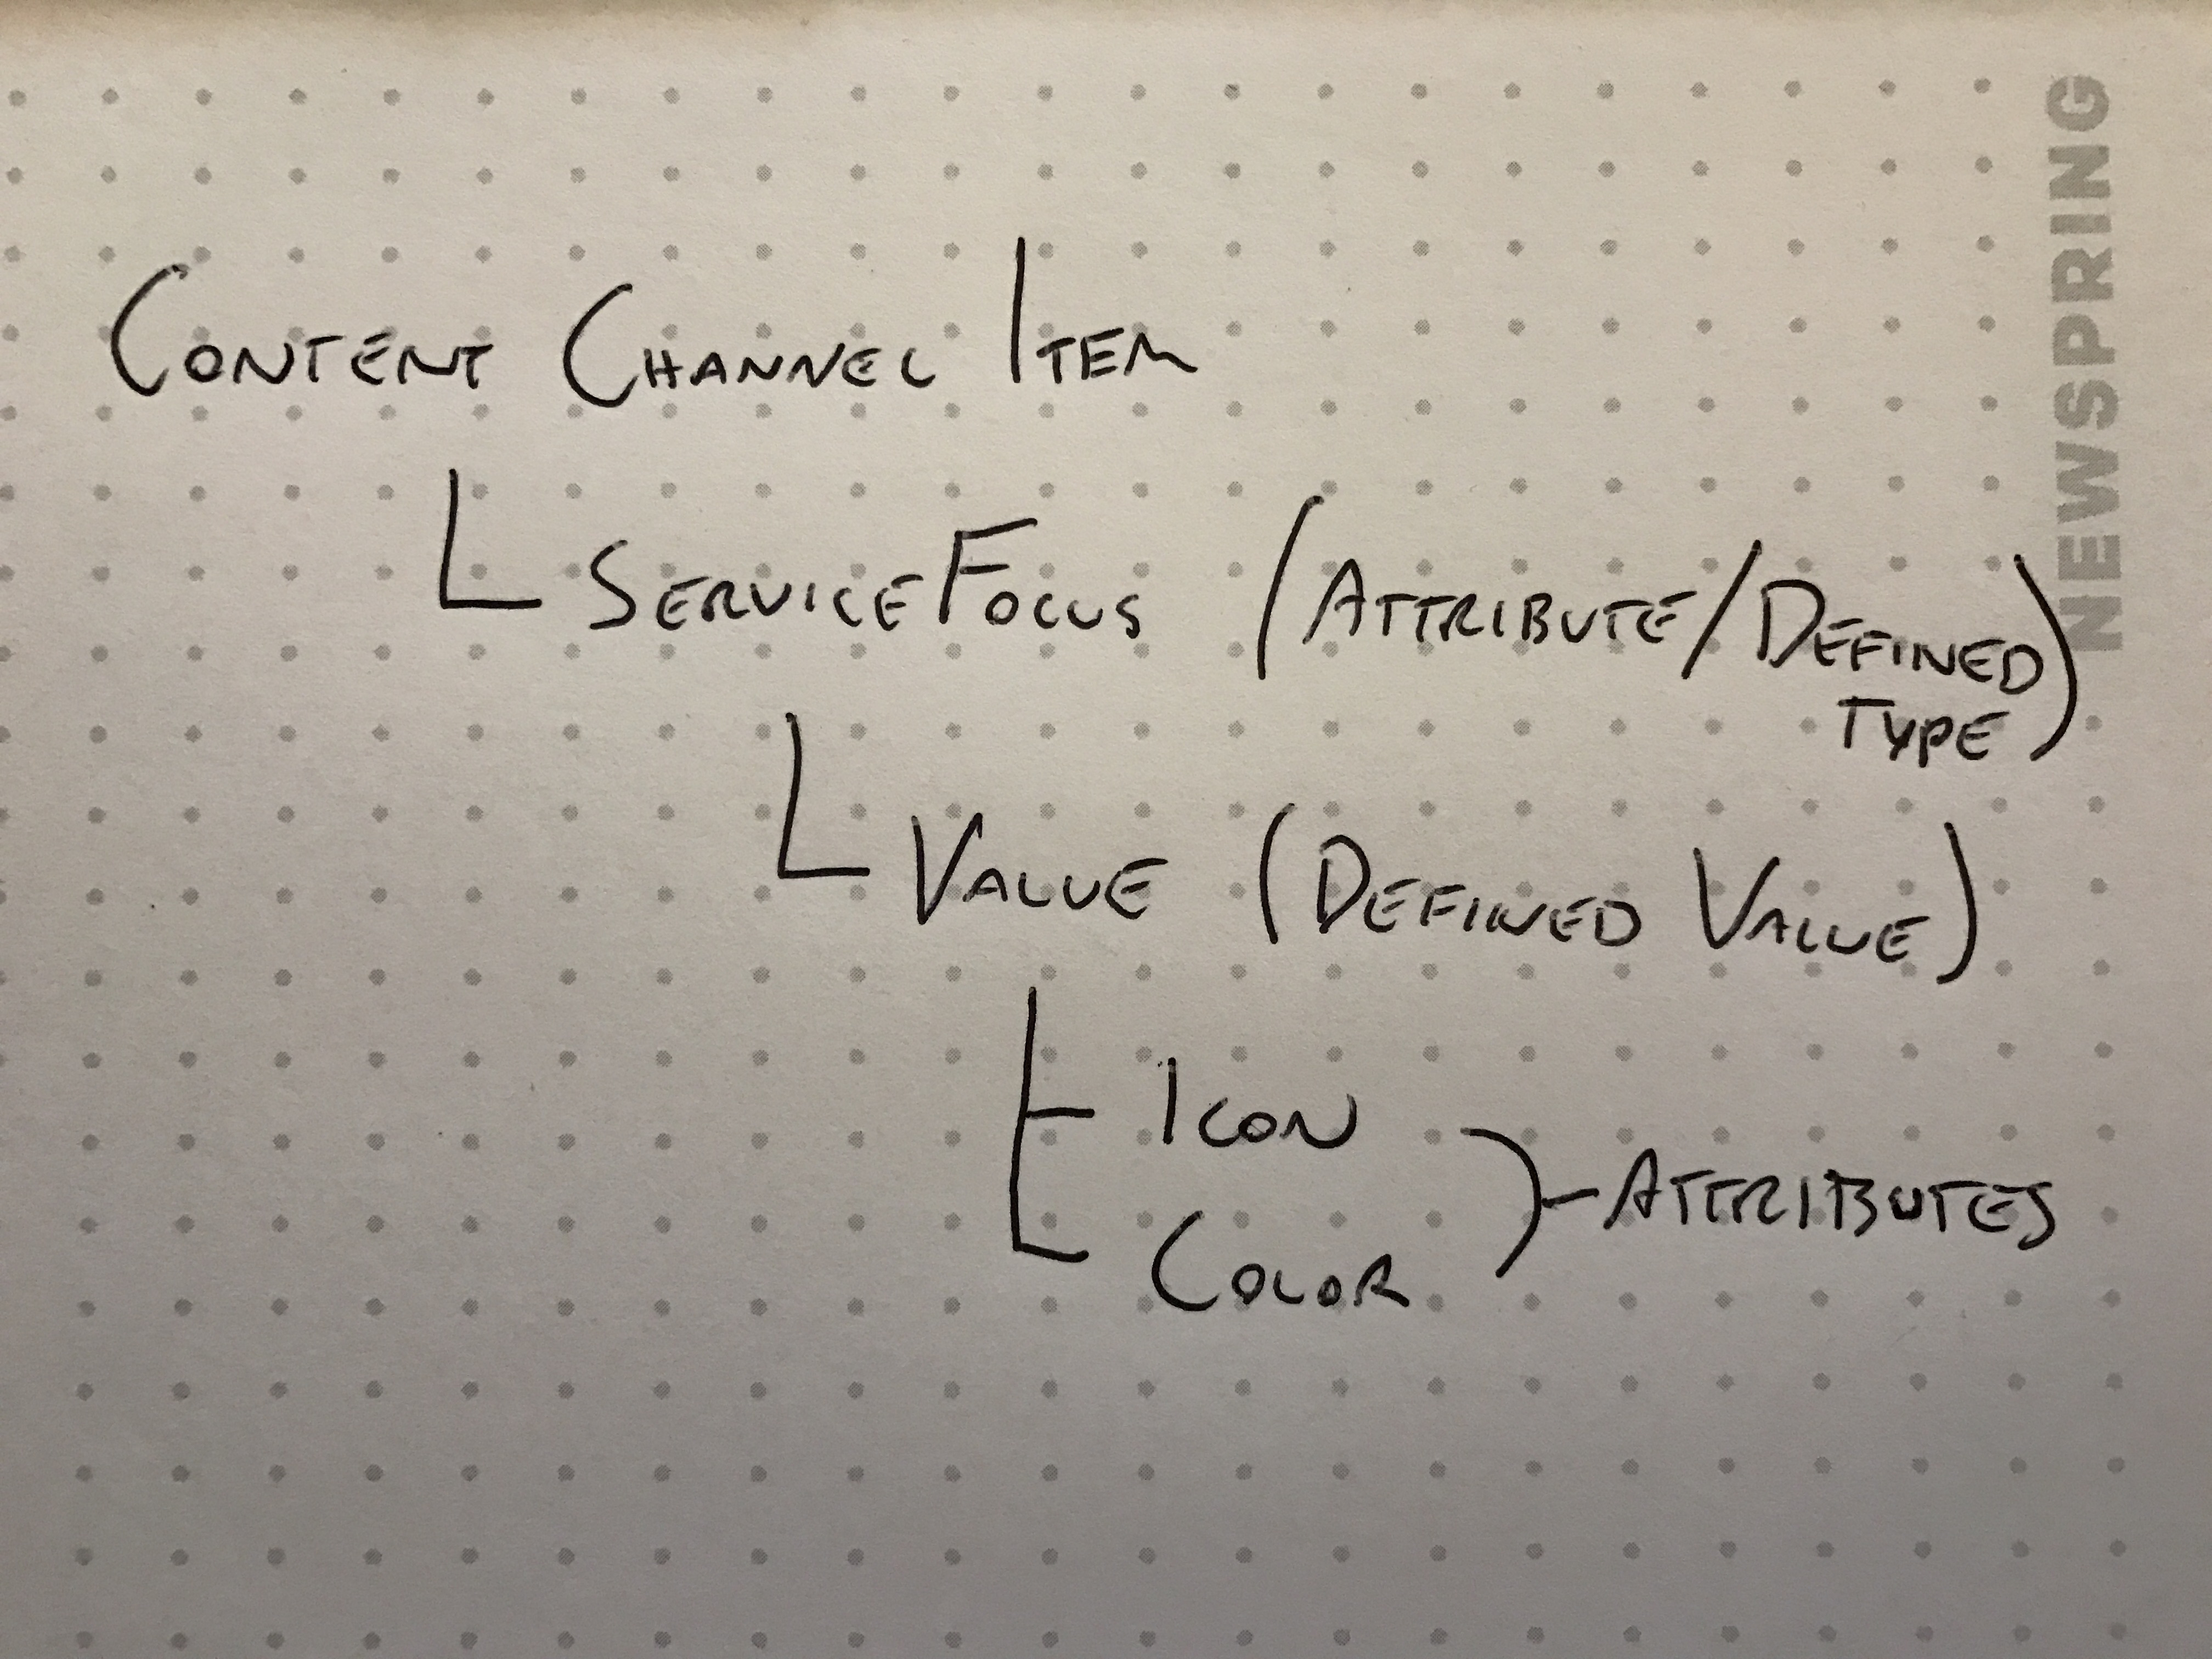 NEWSPRING
CONTENT CHANNEL ITEM
SERVICEFOCUS (ATTRIBUTE/DEFINED
TYPE)
VALUE (DEFINED VALUE)
ICON
ATTRIBUTES
COLOR